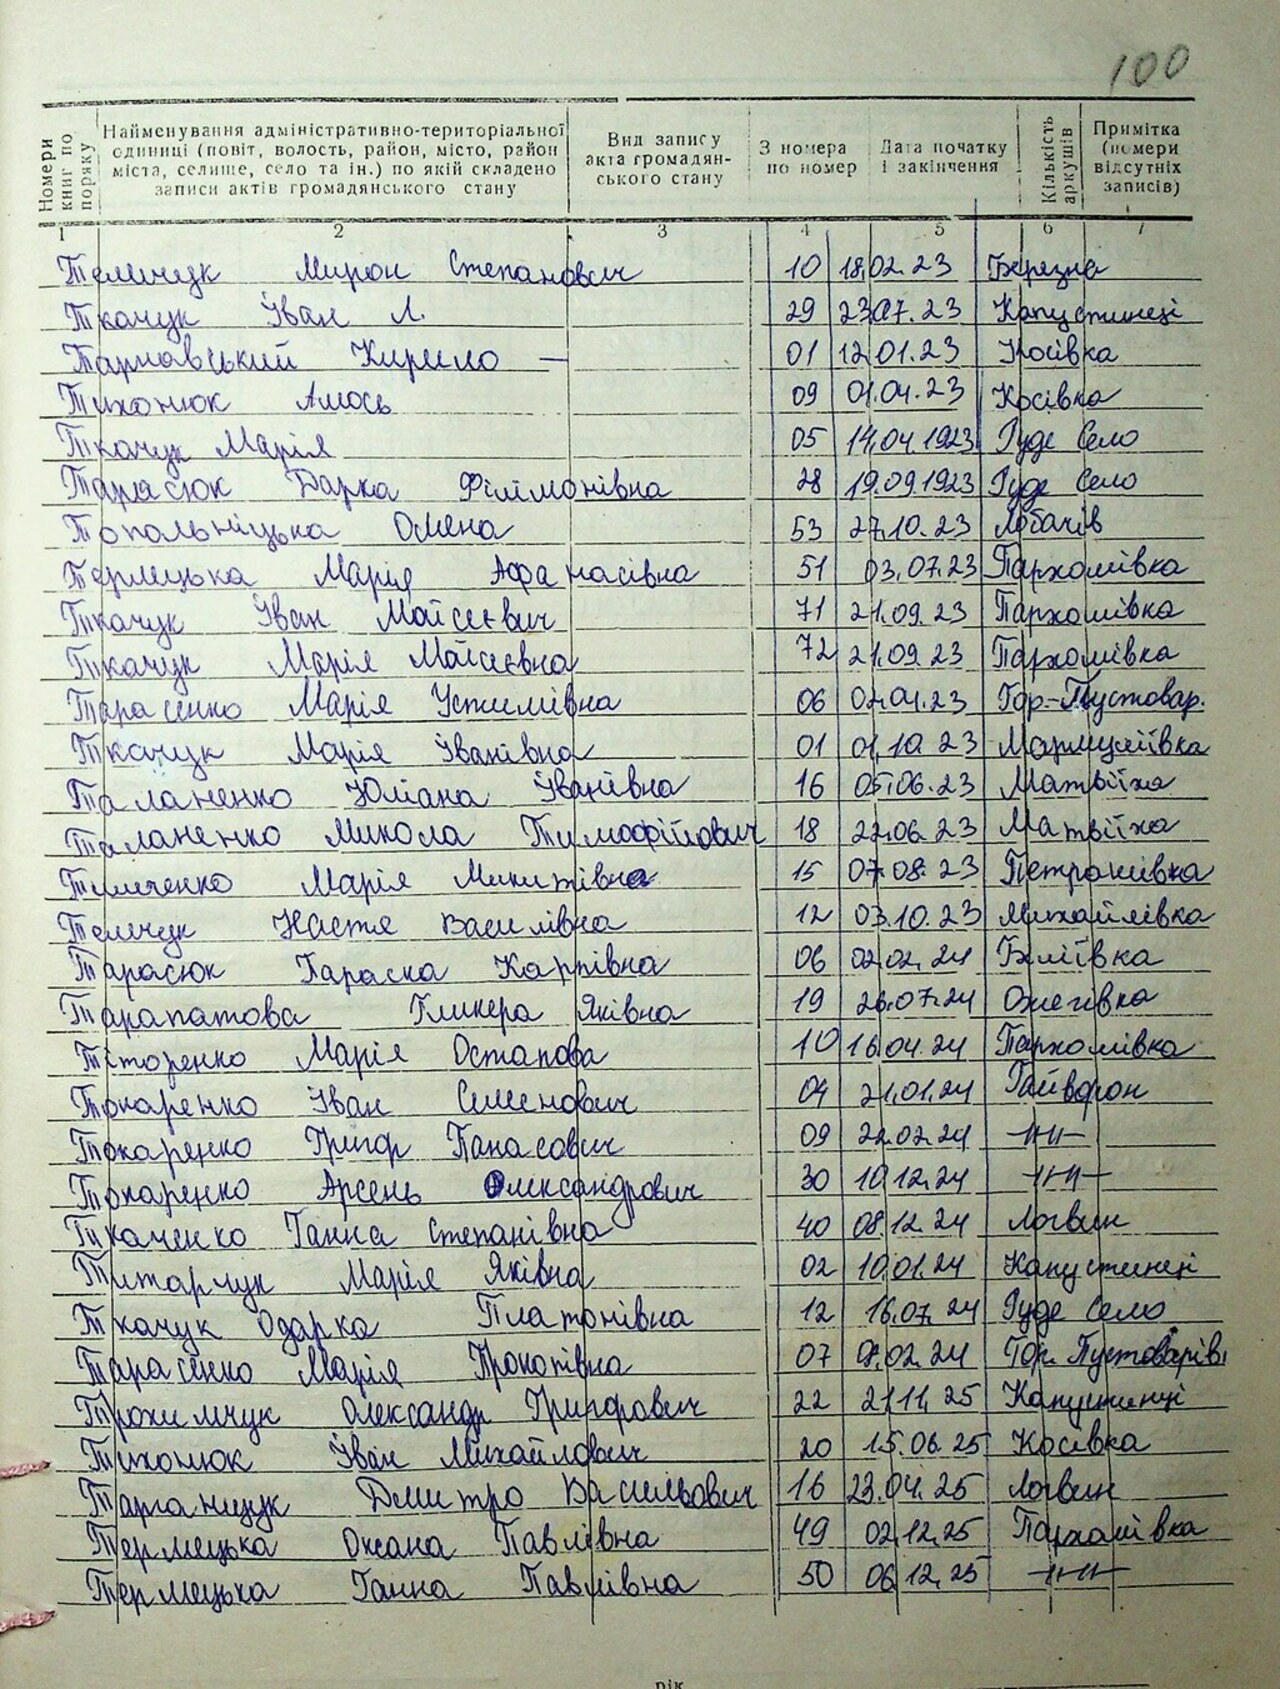 100
Номери книг по порядку
Найменування адміністративно-територіальної одиниці (повіт, волость, район, місто, район міста, селище, село та ін.) по якій складено записи актів громадянського стану
Вид запису акта громадян-ського стану
З номера по номер
Дата початку і закінчення
Кількість аркушів
Примітка (номери відсутніх записів)
1 2 3 4 5 6 7
Мирон Степанович 10 18.02.23 Березна
Ткачук Іван Л. 29 23.07.23 Капустинці
Тарновський Кирило — 01 12.01.23 Косівка
Тихонюк Амось 09 01.04.23 Косівка
Ткачук Марія 05 14.04.1923 Руде Село
Тарасюк Дарка Філімонівна 28 19.09.1923 Руде Село
Топольніцька Олена 53 27.10.23 Лобачів
Терлецька Марія Афанасівна 51 03.07.23 Пархомівка
Ткачук Іван Мойсеєвич 71 21.09.23 Пархомівка
Ткачук Марія Мойсеєвна 72 21.09.23 Пархомівка
Тарасенко Марія Устимівна 06 02.01.23 Гор.-Пустовар.
Ткачук Марія Іванівна 01 01.10.23 Мармуліївка
Таланенко Юліана Іванівна 16 05.06.23 Матвіїха
Таланенко Микола Тимофійович 18 22.06.23 Матвіїха
Тимченко Марія Микитівна 15 07.08.23 Петрошівка
Настя Василівна 12 03.10.23 Михайлівка
Тарасюк Параска Карпівна 06 02.02.24 Біліївка
Тарапатова Гликера Яківна 19 26.07.24 Ожегівка
Тіторенко Марія Остапова 10 16.04.24 Пархомівка
Токаренко Іван Семенович 04 21.01.24 Гайворон
Токаренко Григор Панасович 09 22.02.24 -//-//-
Токаренко Арсень Олександрович 30 10.12.24 -//-//-
Ткаченко Ганна Степанівна 40 08.12.24 Логвин
Титарчук Марія Яківна 02 10.01.24 Капустинці
Ткачук Одарка Платонівна 12 16.07.24 Руде Село
Тарасенко Марія Прокопівна 07 02.24 Гор. Пустоварів.
Трохимчук Олександр Григорович 22 21.11.25 Капустинці
Тихонюк Іван Михайлович 20 15.06.25 Косівка
Дмитро Васильович 16 23.04.25 Логвин
Терлецька Оксана Павлівна 49 02.12.25 Пархомівка
Терлецька Ганна Павлівна 50 06.12.25 -//-//-
рік